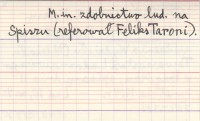 M. in. zdobnictwo lud. na
Spiszu (referował Feliks Taroni).